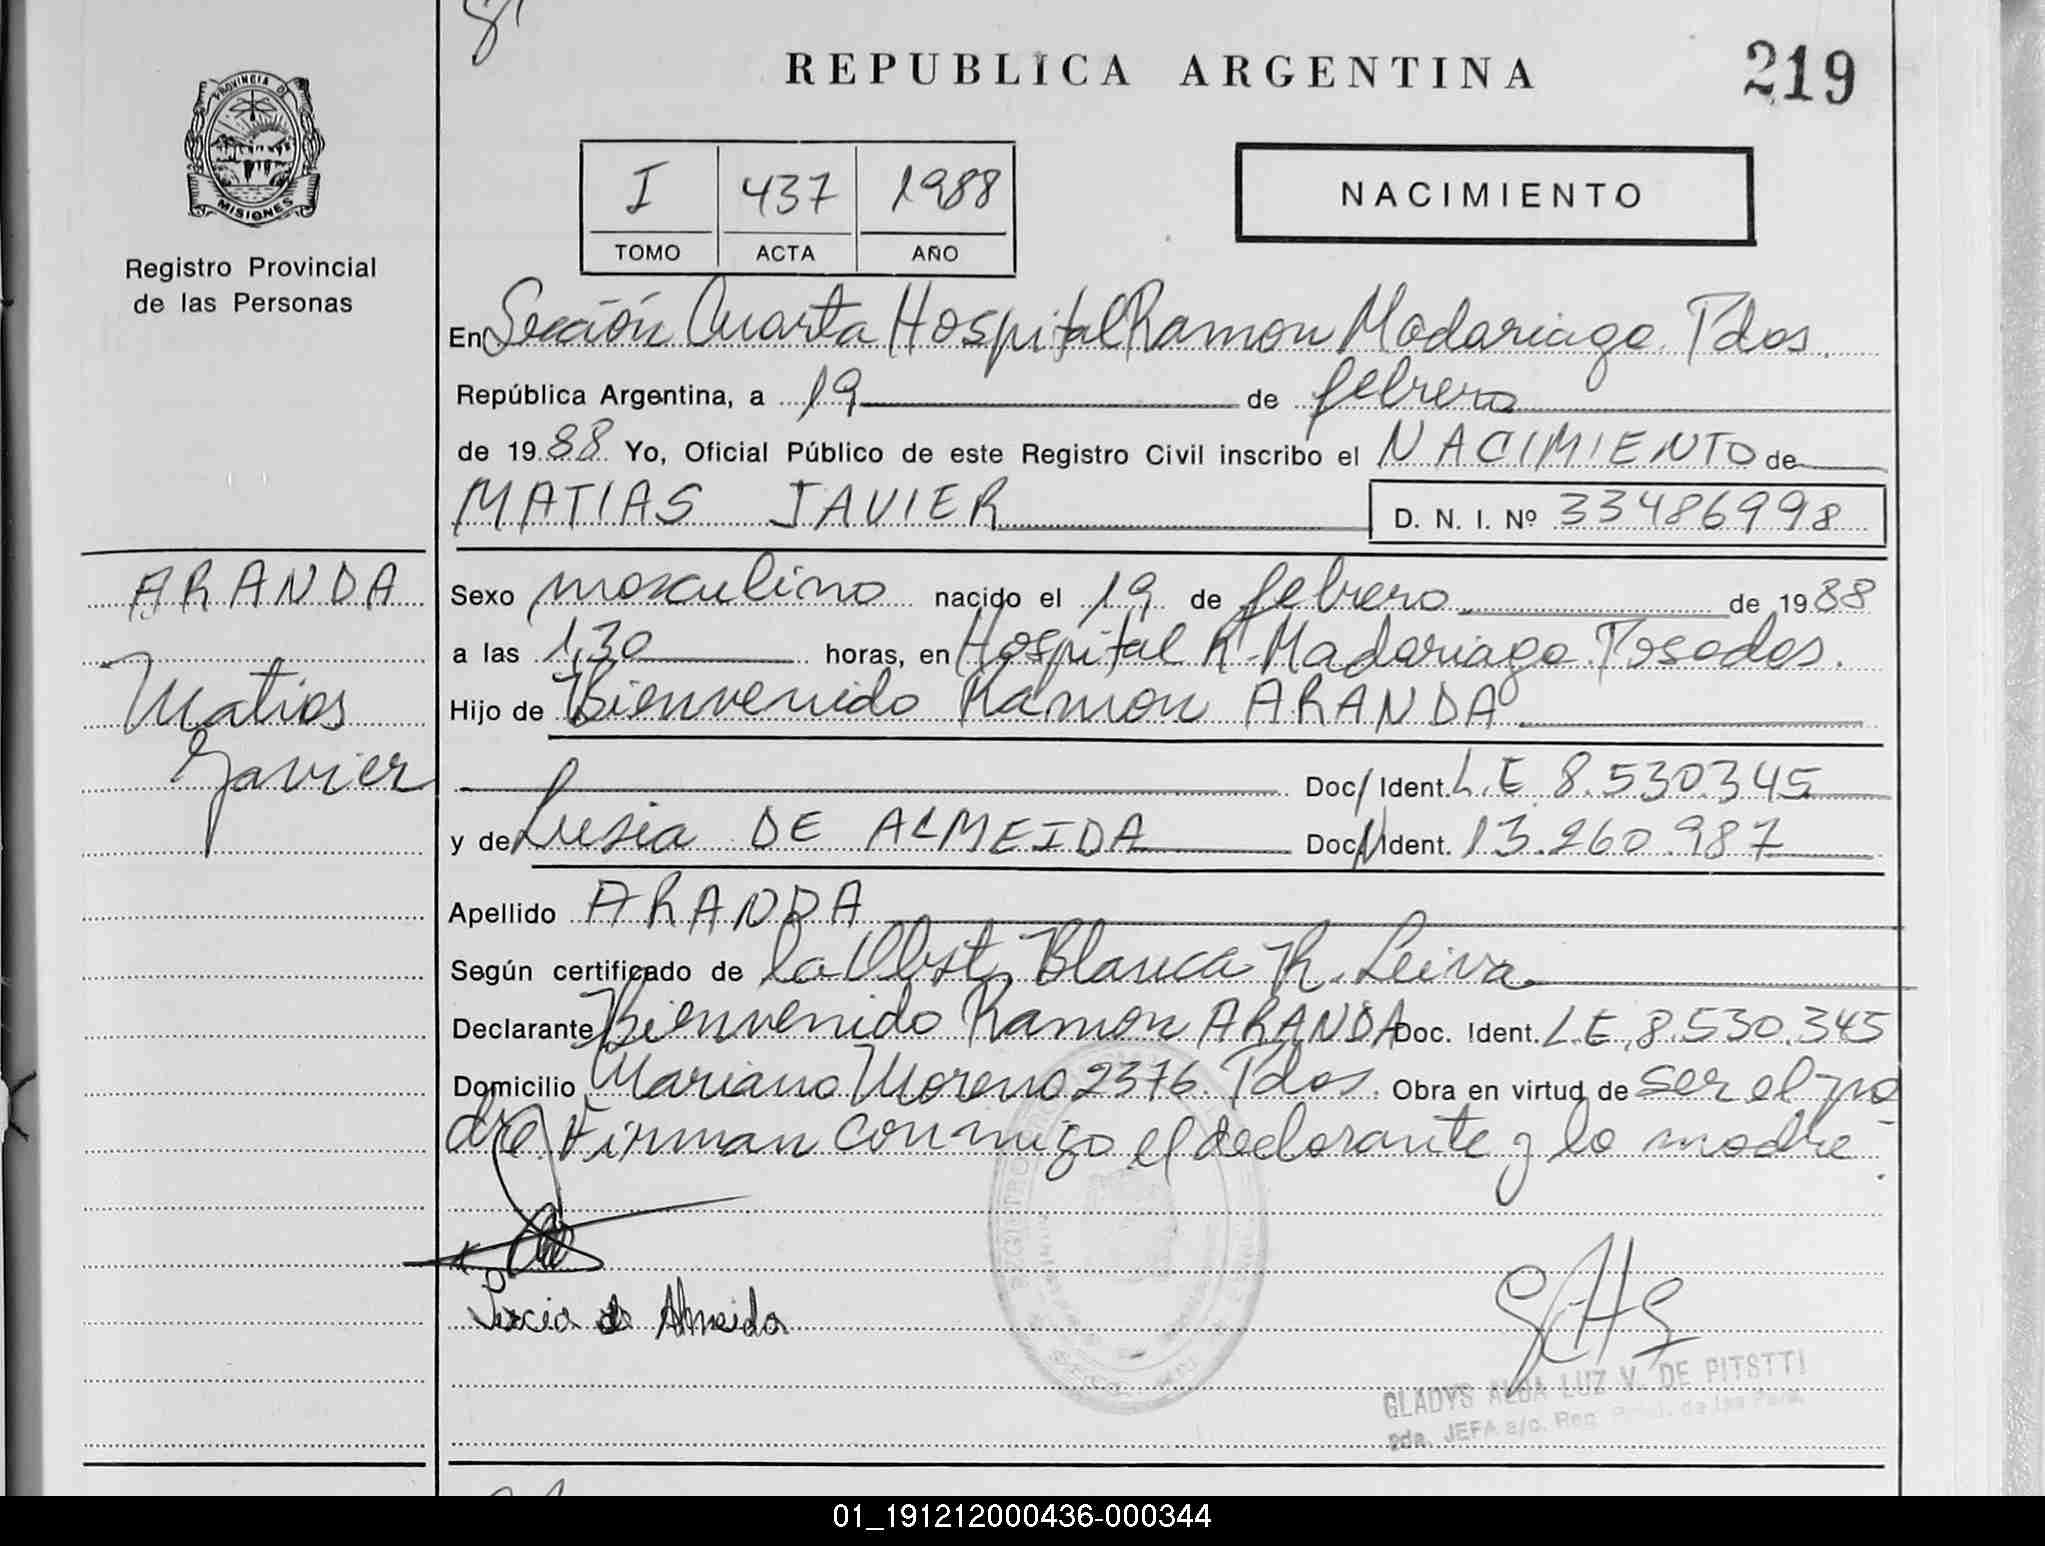 REPUBLICA ARGENTINA
219
PROVINCIA DE
MISIONES
Registro Provincial
de las Personas
I 437 1988
TOMO ACTA AÑO
NACIMIENTO
En Sección Cuarta Hospital Ramon Madariaga. Pdas.
República Argentina, a 19 de febrero
de 1988 Yo, Oficial Público de este Registro Civil inscribo el NACIMIENTO de
MATIAS JAVIER D. N. I. Nº 33486998
ARANDA
Matias
Javier
Sexo masculino nacido el 19 de febrero de 1988
a las 1,30 horas, en Hospital R. Madariaga. Posadas.
Hijo de Bienvenido Ramon ARANDA
Doc/ Ident. L.E. 8.530.345
y de Lusia DE ALMEIDA Doc/ Ident. 13.260.987
Apellido ARANDA
Según certificado de la Obst. Blanca R. Leiva
Declarante Bienvenido Ramon ARANDA Doc. Ident. L.E. 8.530.345
Domicilio Mariano Moreno 2376. Pdas. Obra en virtud de ser el pa
dre. Firman conmigo el declarante y la madre.
de Almeida
GLADYS ALBA LUZ V. DE PITSTTI
2da. JEFA a/c. Reg. Provl. de las Pers.
01_191212000436-000344